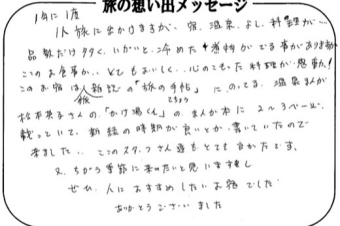 旅の想い出メッセージ
1年に1度
1人旅に出かけますが、宿、温泉、よし、料理が…
品数だけ多く、いかにも冷めた煮物がでる事があります
ここのお食事が、とてもおいしく、心のこもった料理が感動!
このお宿は旅雑誌の「旅の手帖」にのってる、温泉まんが
てちょう
松本英子さんの「かけ湯くん」のまんが本に2〜3ページ
載っていて、新緑の時期が良いとか書いていたので
来ました。ここのスタッフさん達もとても良かったです。
又、ちがう季節に来たいと思いますし
ぜひ、人におすすめしたいお宿でした
ありがとうございました